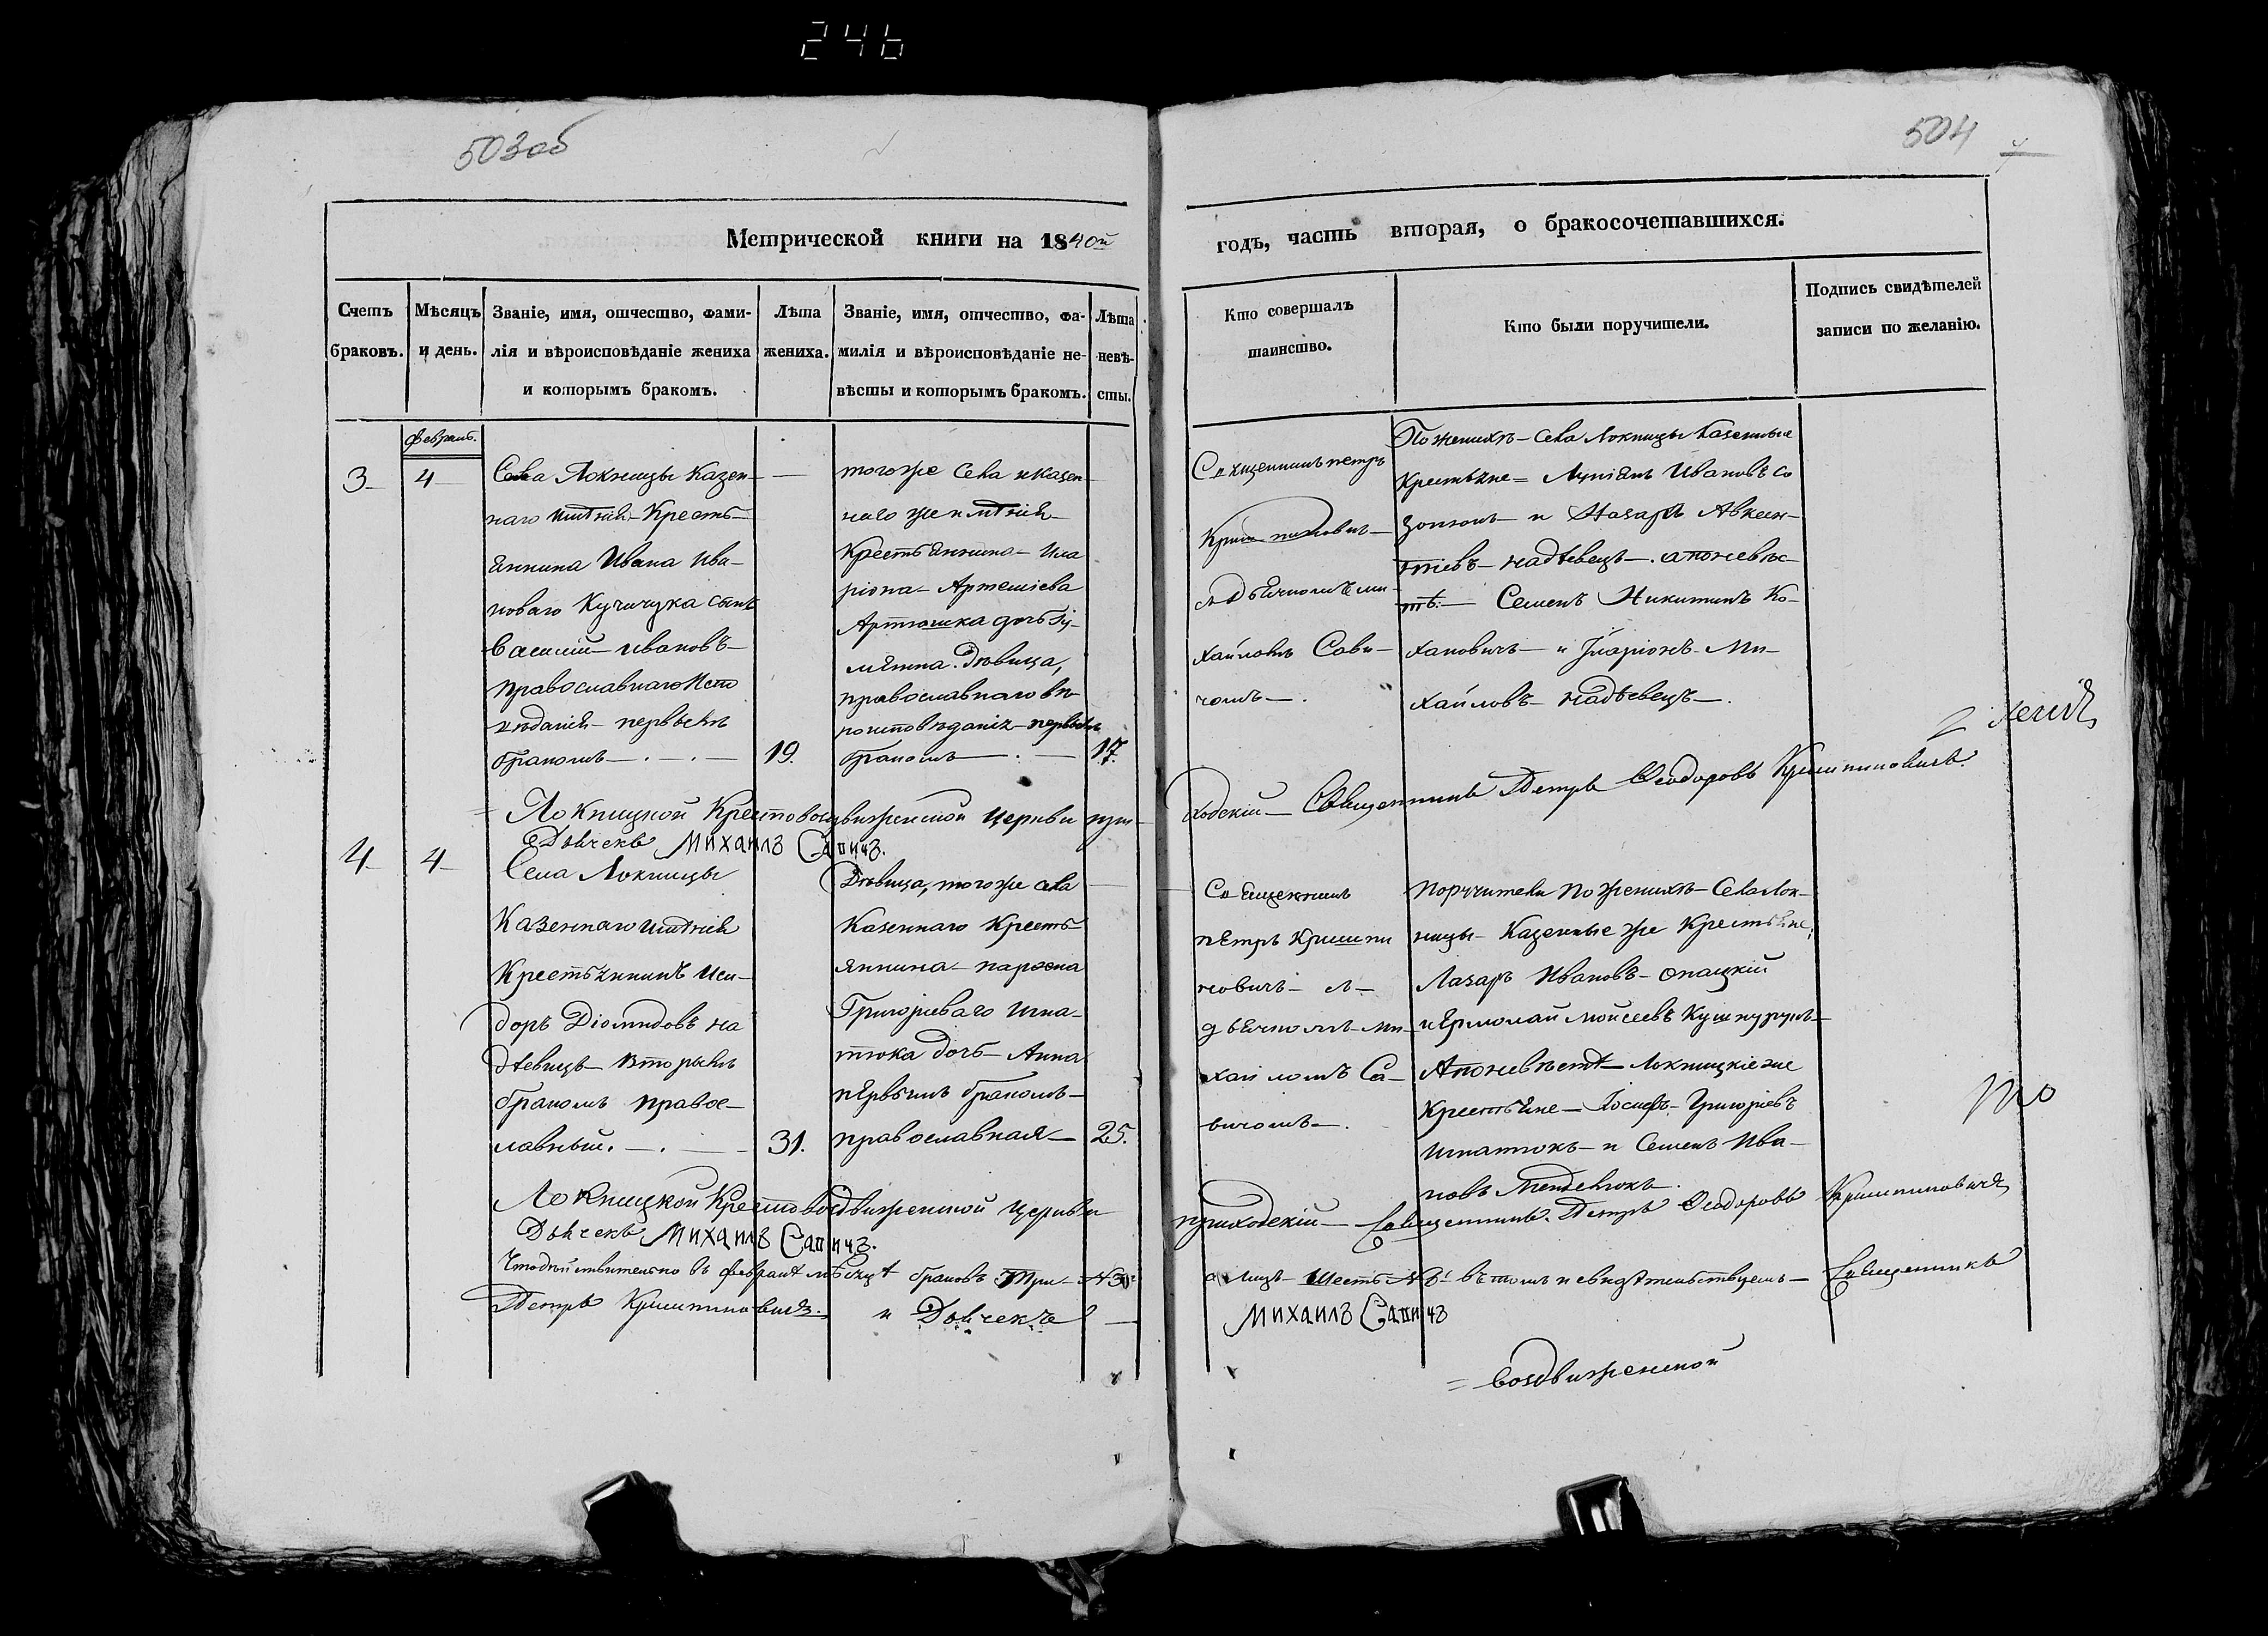 246
503об
504
Метрической книги на 1840й
годъ, часть вторая, о бракосочетавшихся.
Счетъ
браковъ.
Мѣсяцъ
и день.
Званіе, имя, отчество, фами-
лія и вѣроисповѣданіе жениха
и которымъ бракомъ.
Лѣта
жениха.
Званіе, имя, отчество, фа-
милія и вѣроисповѣданіе не-
вѣсты и которымъ бракомъ.
Лѣта
невѣ-
сты.
Кто совершалъ
таинство.
Кто были поручители.
Подпись свидѣтелей
записи по желанію.
3
феврал.
4
Села Локницы Казен-
наго имѣнія Кресть-
янина Ивана Ива-
новаго Кучичука сынъ
Василій Ивановъ
православнаго испо
вѣданія первымъ
бракомъ
19.
тогоже села и казен
наго же имѣнія
Крестьянина Ила
ріона Артеміева
Артюшка дочь
Дѣвица,
православнаго вѣ
роисповѣданія первымъ
бракомъ
17.
Священникъ петръ
съ дьячкомъ ми
хайломъ Сави-
чомъ
По женихѣ села Локницы Казенные
Крестьяне Ивановъ
и Назаръ Авксен-
тіевъ надѣевецъ. а по невѣс-
тѣ: Семенъ Никитинъ Ко-
хановичъ и Іларіонъ Ми-
хайловъ надѣевецъ.
= Локницкой Крестовоздвиженской Церкви при-
ходскій Священникъ Петръ Ѳеодоровъ Криштиновичъ.
Дьячекъ Михаилъ Савичъ.
4
4
Села Локницы
Казеннаго имѣнія
Крестьянинъ Иси-
доръ Діомидовъ на
дѣевецъ вторымъ
бракомъ правос-
лавный.
31.
Дѣвица, тогоже села
Казеннаго Кресть-
янина
Григоріеваго Игна-
тюка дочь Анна
первымъ бракомъ
православная
25.
Священникъ
петръ Кришти
новичъ съ
дьячкомъ Ми-
хайломъ Са-
вичомъ.
поручители по женихѣ Села Лок-
ницы Казенные же Крестьяне,
Лазаръ Ивановъ опацкій
и Ермолай Мойсеевъ
А по невѣстѣ Локницкіе же
Крестьяне Іосифъ Григоріевъ
Игнатюкъ и Семенъ Ива-
новъ
Локницкой Крестовоздвиженской Церкви
приходскій Священникъ Петръ Ѳеодоровъ Криштиновичъ
Дьячекъ Михаилъ Савичъ.
Что дѣйствительно въ февралѣ мѣсяцѣ браковъ три №3
а лицъ шесть №6 въ томъ и свидѣтельствуемъ Священникъ
Петръ Криштиновичъ. и Дьячекъ
Михаилъ Савичъ
= Воздвиженской